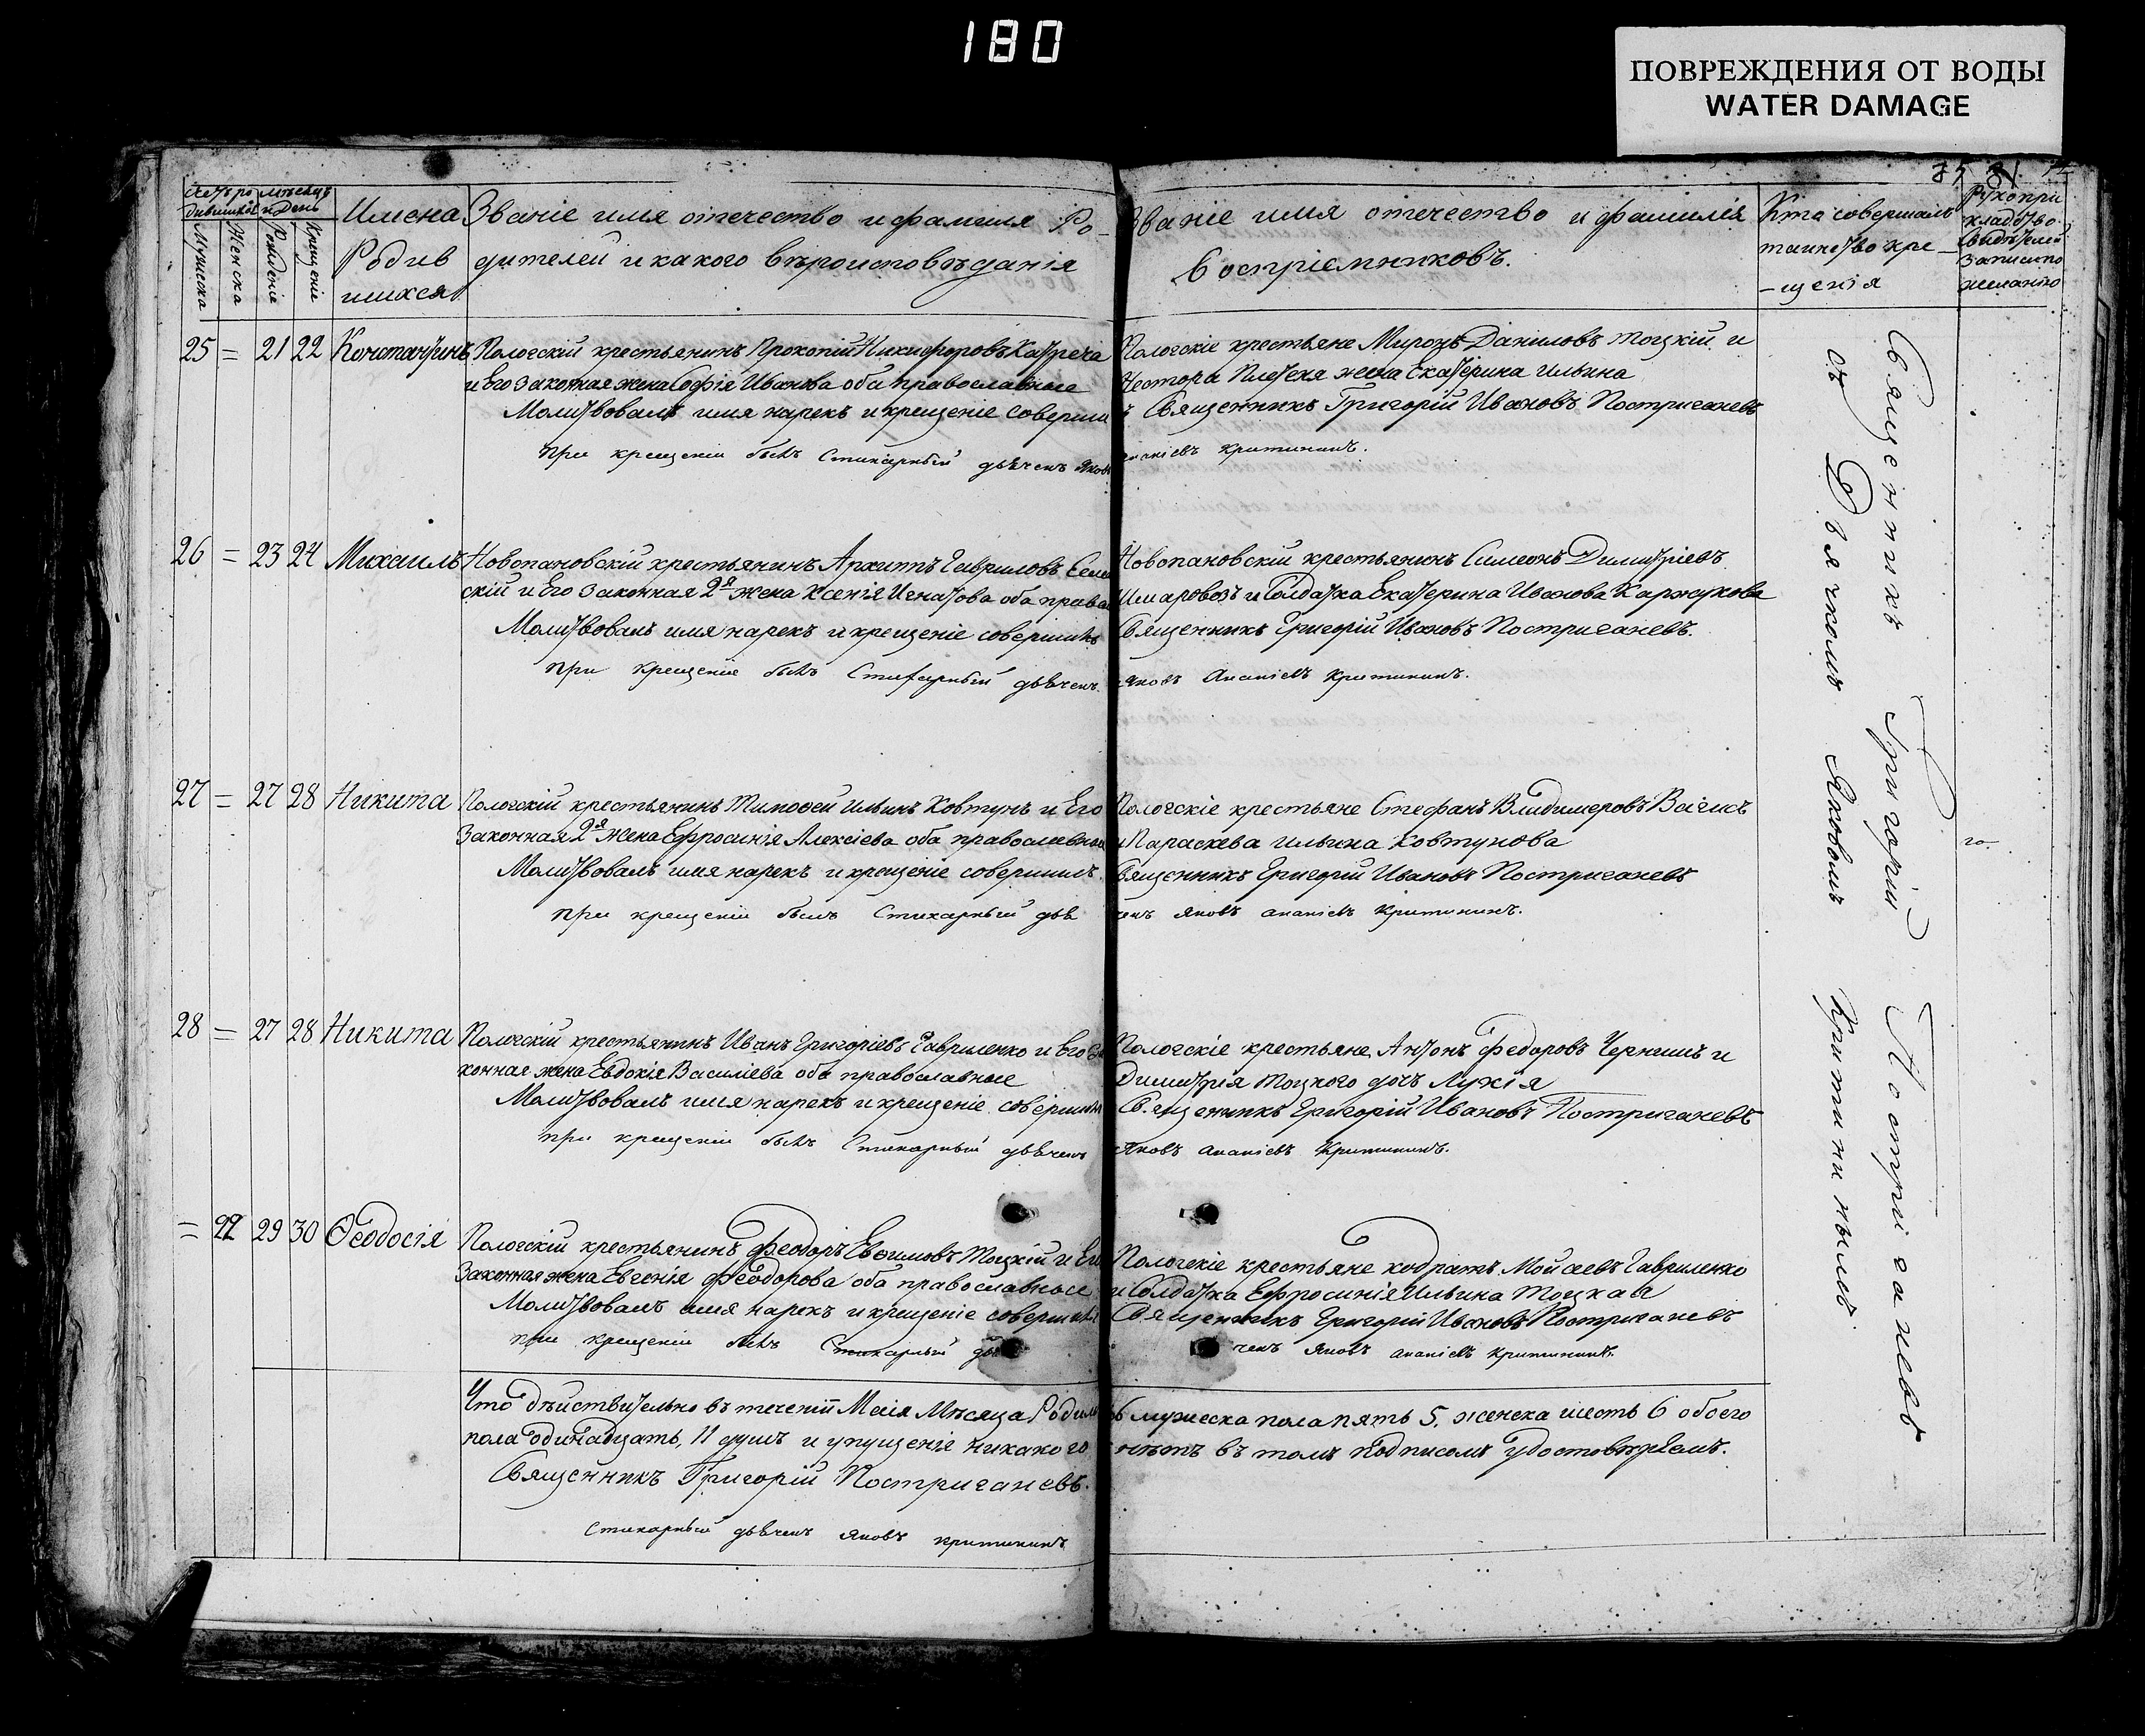 180
ПОВРЕЖДЕНИЯ ОТ ВОДЫ
WATER DAMAGE
Мужеска
Женска
Рожденіе
Крещеніе
Имена
Родив
шихся
Званіе имя отечество и фамилия Ро-
дителей и какого вѣроисповѣданія
Званіе имя отечество и фамилія
восприемниковъ.
Кто совершалъ
таинство кре-
-щенія
Рукопри
кладство
свидѣтелей
записи по
желанію
25 = 21 22 Константинъ Пологскій крестьянинъ Прокопій Никифоровъ
и Его законная жена Софія Иванова оба православные
Молитвовалъ имя нарекъ и крещеніе соверши
при крещеніи былъ Стихарный дьячекъ Яковъ
Пологскіе крестьяне Миронъ Даниловъ Тоцкій и
Нестора жена Екатерина Ильина
ъ Священникъ Григорій Ивановъ Постриганевъ
ананіевъ Критининъ.
26 = 23 24 Михаилъ Новопановскій крестьянинъ Архиппъ Гавриловъ
скій и Его законная 2я жена Ксенія Игнатова оба права
Молитвовалъ имя нарекъ и крещеніе совершилъ
при крещеніе былъ Стихарный дьячекъ
Новопановскій крестьянинъ Симеонъ Димитріевъ
Шмаровозъ и Солдатка Екатерина Иванова Каржукова
Священникъ Григорій Ивановъ Постриганевъ.
Яковъ Ананіевъ Критининъ.
27 = 27 28 Никита Пологскій крестьянинъ Тимофей Ильинъ Ковтунъ и Его
Законная 2я жена Ефросинія Алексіева оба православные
Молитвовалъ имя нарекъ и крещеніе совершилъ.
при крещеніи былъ Стихарный дья
Пологскіе крестьяне Стефанъ Владимеровъ
и Параскева Ильина Ковтунова
Священникъ Григорій Ивановъ Постриганевъ
чекъ Яковъ ананіевъ Критининъ.
28 = 27 28 Никита Пологскій крестьянинъ Иванъ Григоріевъ Гавриленко и Его За
конная жена Евдокія Василіева оба православные
Молитвовалъ имя нарекъ и крещеніе совершилъ
при крещеніи былъ Стихарный дьячекъ
Пологскіе крестьяне Антонъ Федоровъ Чернишъ и
Димитрия Тоцкого дочь Лукія
Священникъ Григорій Ивановъ Постриганевъ
Яковъ ананіевъ Критининъ.
= 29 30 Феодосія Пологскій крестьянинъ Феодоръ Евфимовъ Тоцкій и Его
Законная жена Евгенія Феодорова оба православные
Молитвовалъ имя нарекъ и крещеніе совершилъ
при крещеніи былъ Стихарный дья
Пологскіе крестьяне кодратъ Мойсаевъ Гавриленко
и Солдатка Ефросинія Ильина Тоцкая
Священникъ Григорій Ивановъ Постриганевъ
чекъ Яковъ ананіевъ Критининъ.
Что дѣйствительно въ теченіи Маія Мѣсяца Родилось мужеска пола пять 5. женска шесть 6 обоего
пола одинадцать, 11 душъ и упущеніе никакого нѣтъ въ томъ подписомъ удостовѣряемъ.
Священникъ Григорій Постриганевъ.
Стихарный дьячекъ Яковъ Критининъ
Священникъ Григорій Постріганевъ
съ Дьячкомъ Яковомъ Критининымъ